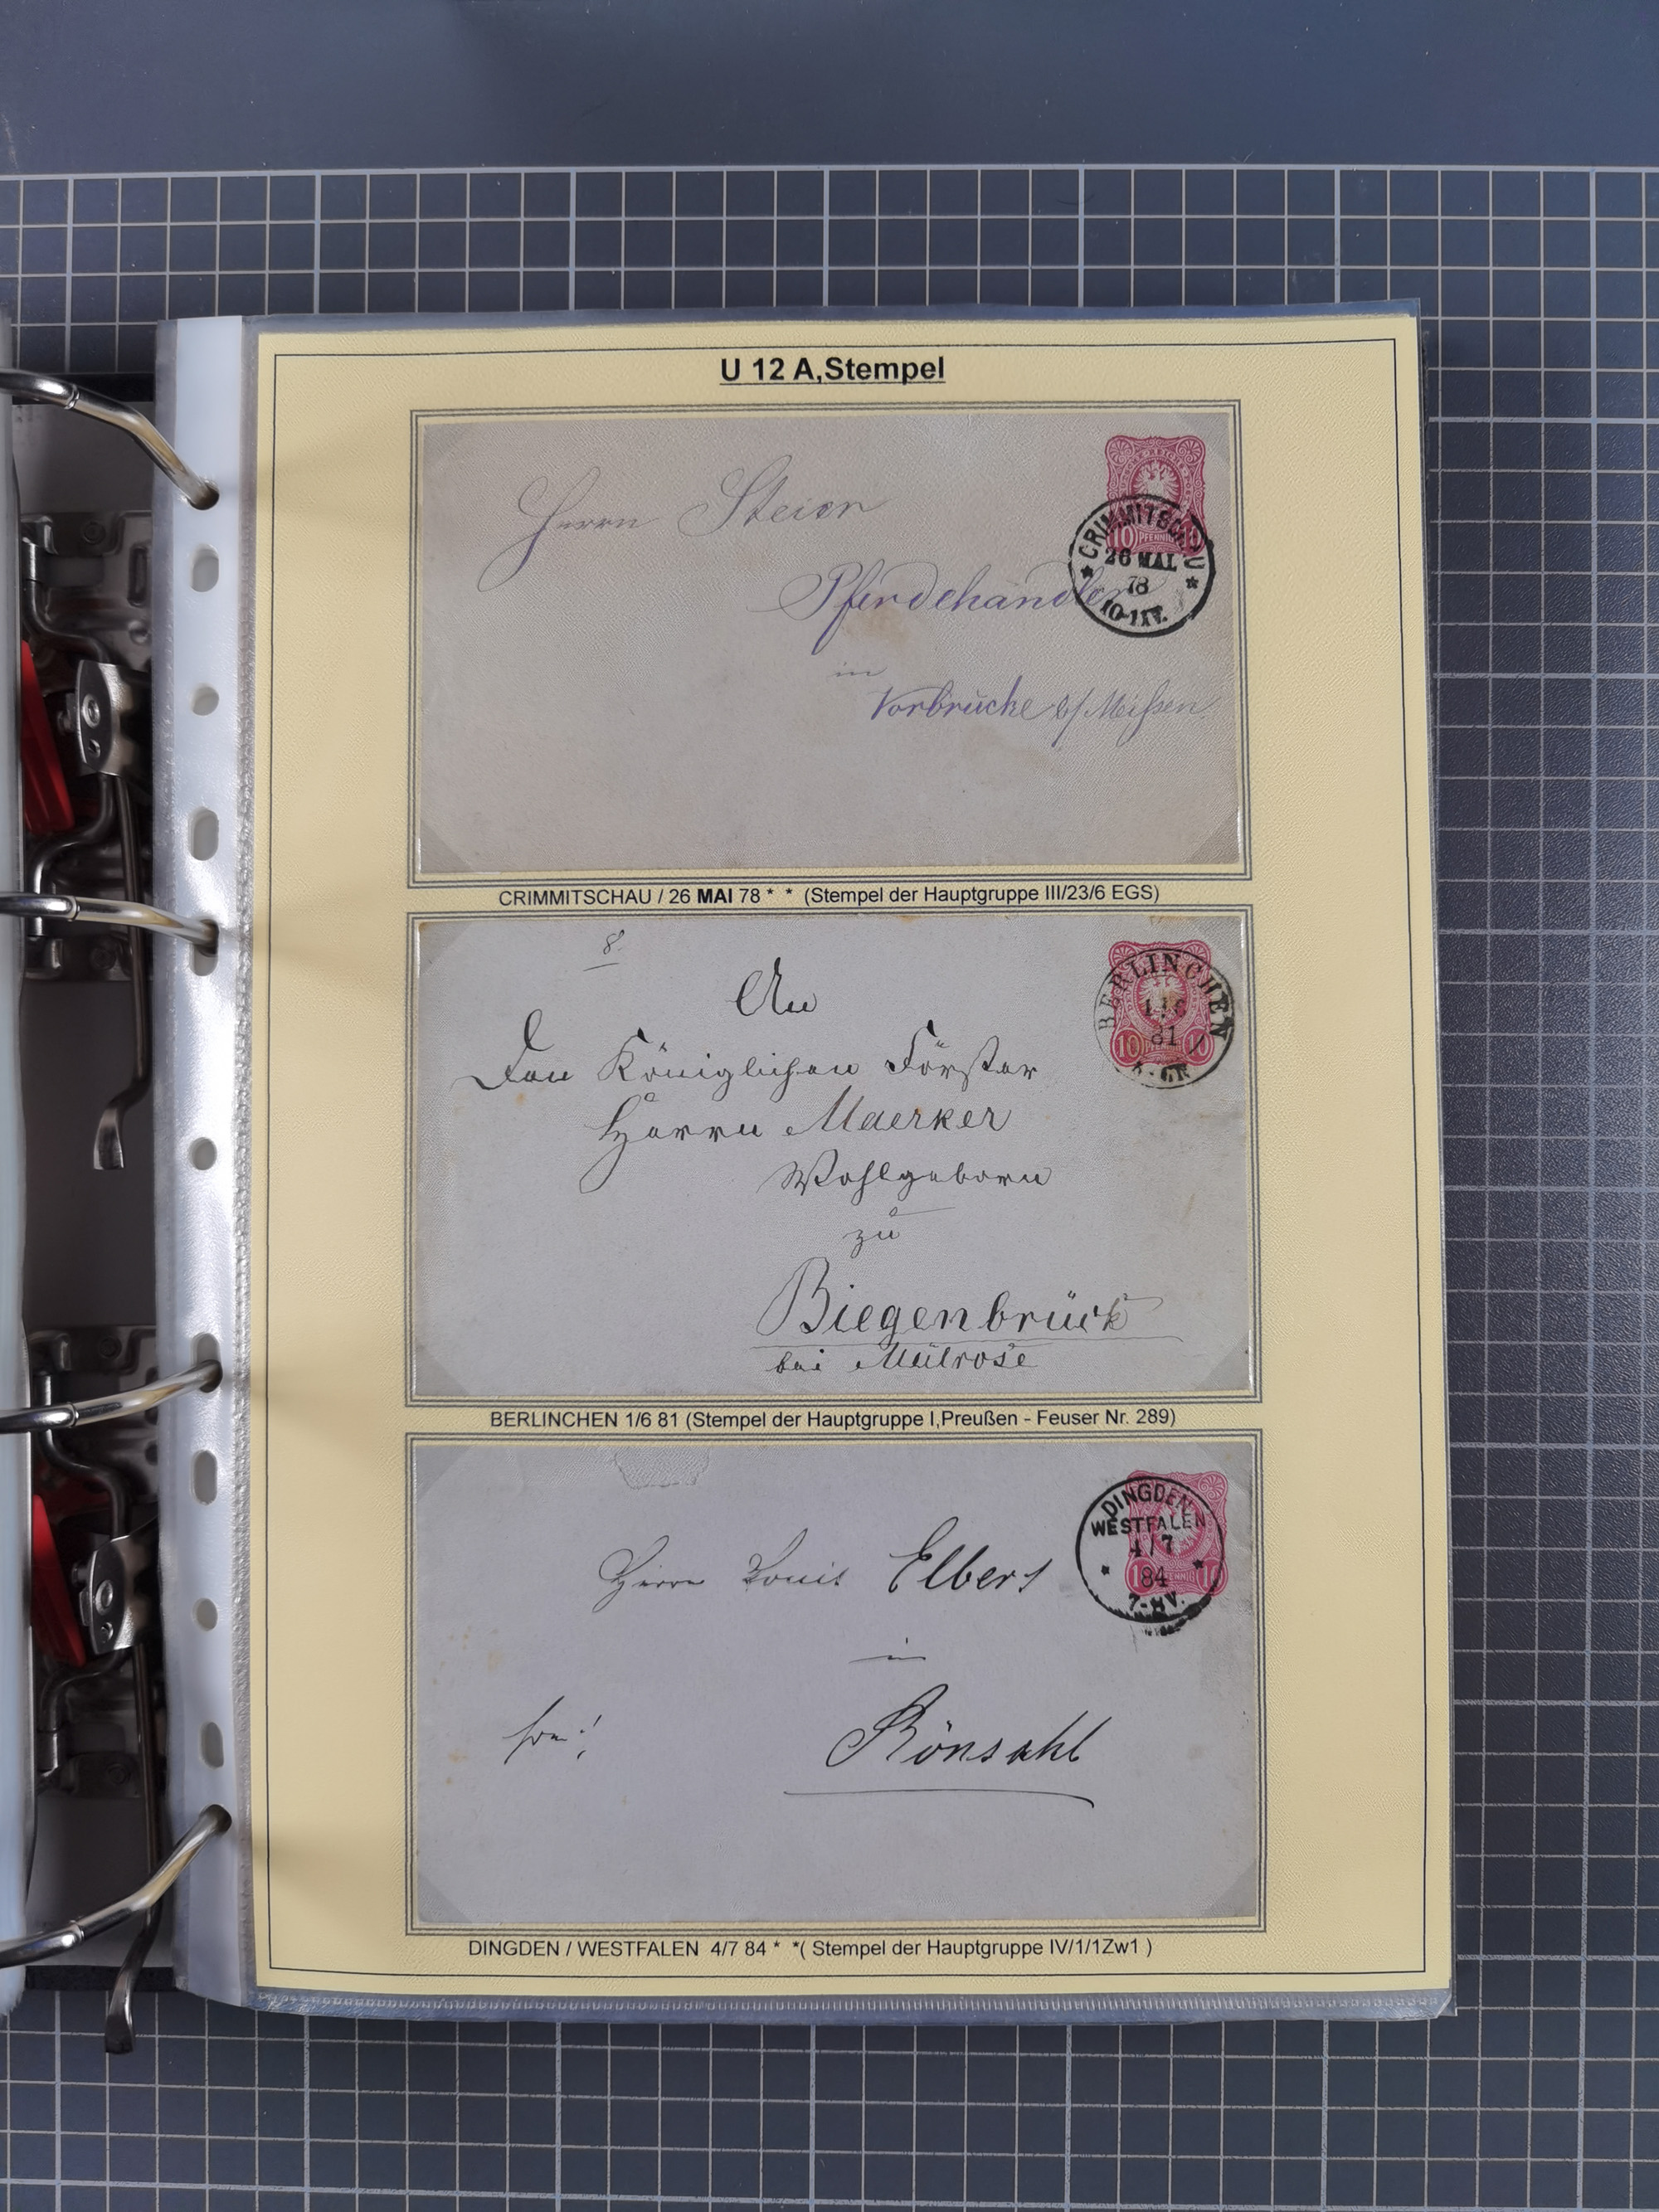 U 12 A,Stempel
10 PFENNIG
CRIMMITSCHAU
26 MAI
78
10-11V.
Herrn Steier
Pferdehändler
in
Vorbrücke b/Meißen
CRIMMITSCHAU / 26 MAI 78 * * (Stempel der Hauptgruppe III/23/6 EGS)
8
BERLINCHEN
1/6
81
10 10
An
Den Königlichen Förster
Herrn Maerker
Wohlgeborn
zu
Biegenbrück
bei Mülrose
BERLINCHEN 1/6 81 (Stempel der Hauptgruppe I,Preußen - Feuser Nr. 289)
DINGDEN
WESTFALEN
4/7
* 84 *
7-8V.
PFENNIG 10
Herrn Louis Elbers
in
Rönsahl
DINGDEN / WESTFALEN 4/7 84 * *( Stempel der Hauptgruppe IV/1/1Zw1 )